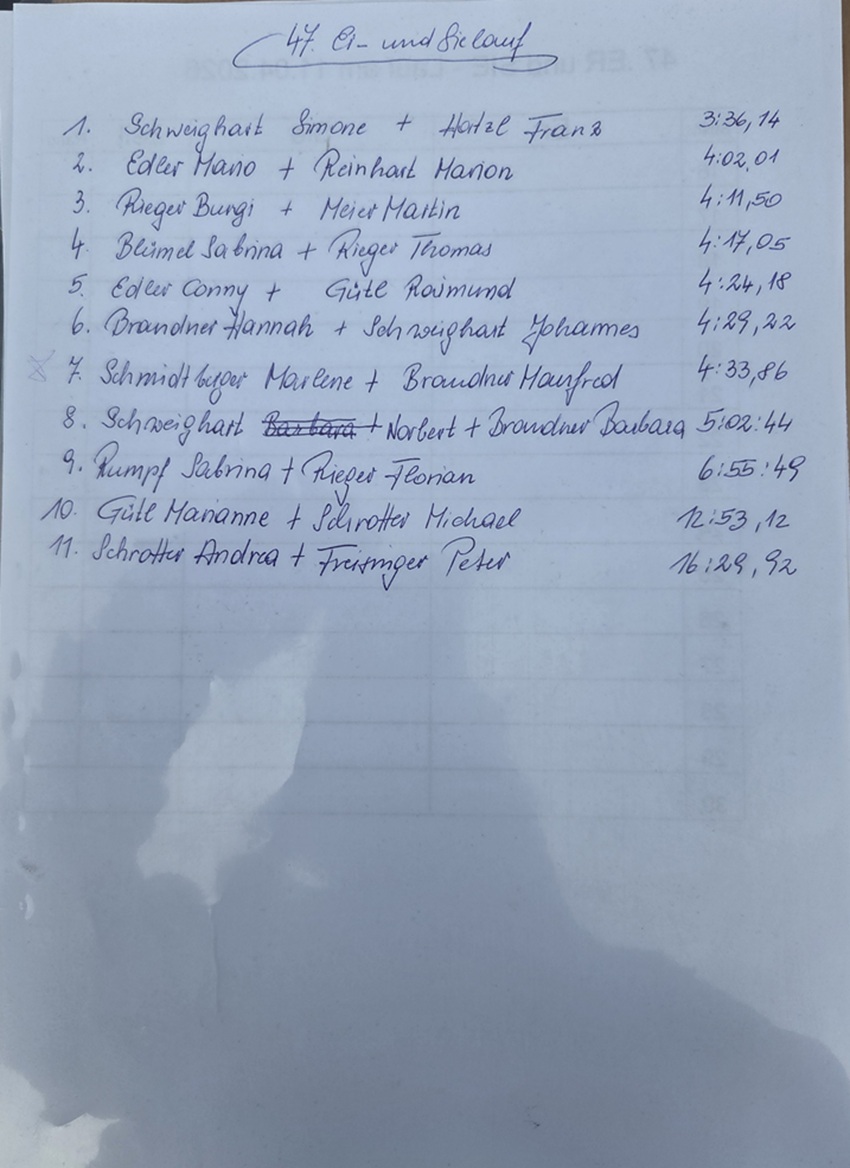 47. Er- und Sielauf
1. Schweighart Simone + Hartzl Franz 3:36,14
2. Edler Mario + Reinhart Marion 4:02,01
3. Rieger Burgi + Meier Martin 4:11,50
4. Blümel Sabrina + Rieger Thomas 4:17,05
5. Edler Conny + Gütl Raimund 4:24,18
6. Brandner Hannah + Schweighart Johannes 4:29,22
7. Schmidtberger Marlene + Brandner Manfred 4:33,86
8. Schweighart Barbara + Norbert + Brandner Barbara 5:02:44
9. Rumpf Sabrina + Rieger Florian 6:55:49
10. Gütl Marianne + Schrotter Michael 12:53,12
11. Schrotter Andrea + Freisinger Peter 16:29,92